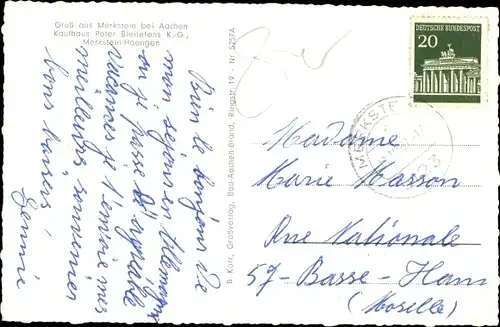 Gruß aus Merkstein bei Aachen
Kaufhaus Peter Bleilefens K.-G.,
Merkstein-Hofstadt
Bien le bonjour de
mon séjour en Allemagne
où je passe d'agréable
vacances et t'envoie mes
meilleurs souvenirs
bons baisers
B Korr, Großverlag, Bad-Aachen-Brand, Ringstr. 19 · Nr. S257A
DEUTSCHE BUNDESPOST
20
MERKSTE
Madame
Marie Masson
Rue Nationale
57-Basse-Ham
(Moselle)